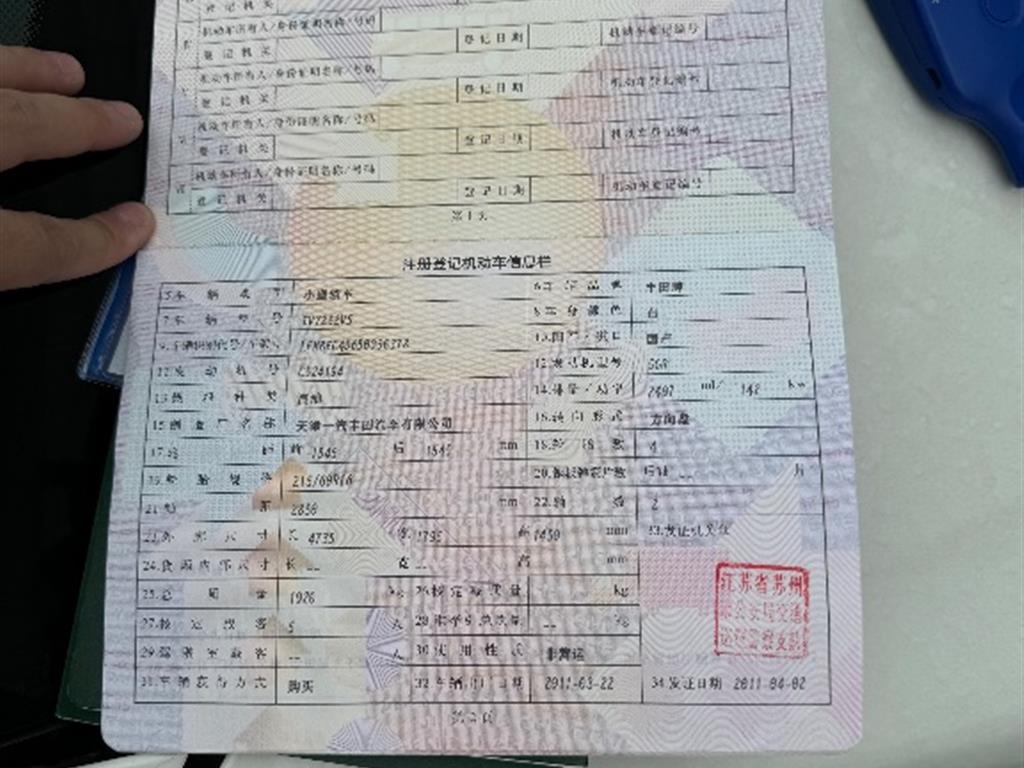 登记机关
机动车所有人/身份证明名称/号码
登记机关 登记日期 机动车登记编号
机动车所有人/身份证明名称/号码
登记机关 登记日期 机动车登记编号
机动车所有人/身份证明名称/号码
登记机关 登记日期 机动车登记编号
机动车所有人/身份证明名称/号码
登记机关 登记日期 机动车登记编号
第1页
注册登记机动车信息栏
5.车辆类型 小型轿车 6.车辆品牌 丰田牌
7.车辆型号 8.车身颜色 白
9.车辆识别代号/车架号 10.国产/进口 国产
11.发动机号 12.发动机型号 5GR
13.燃料种类 汽油 14.排量/功率 2497 ml/ 142 kw
15.制造厂名称 天津一汽丰田汽车有限公司 16.转向形式 方向盘
17.轮距 前 1545 后 1545 mm 18.轮胎数 4
19.轮胎规格 215/60R16 20.钢板弹簧片数 后轴 -- 片
21.轴距 2850 mm 22.轴数 2
23.外廓尺寸 长 4735 宽 1795 高 1450 mm 33.发证机关章
24.货厢内部尺寸 长 -- 宽 高 mm
25.总质量 1926 kg 26.核定载质量 kg
27.核定载客 5 人 28.准牵引总质量 -- kg
29.驾驶室载客 -- 人 30.使用性质 非营运
31.车辆获得方式 购买 32.车辆出厂日期 2011-03-22 34.发证日期 2011-04-02
江苏省苏州
市公安局交通
巡逻警察支队
第2页